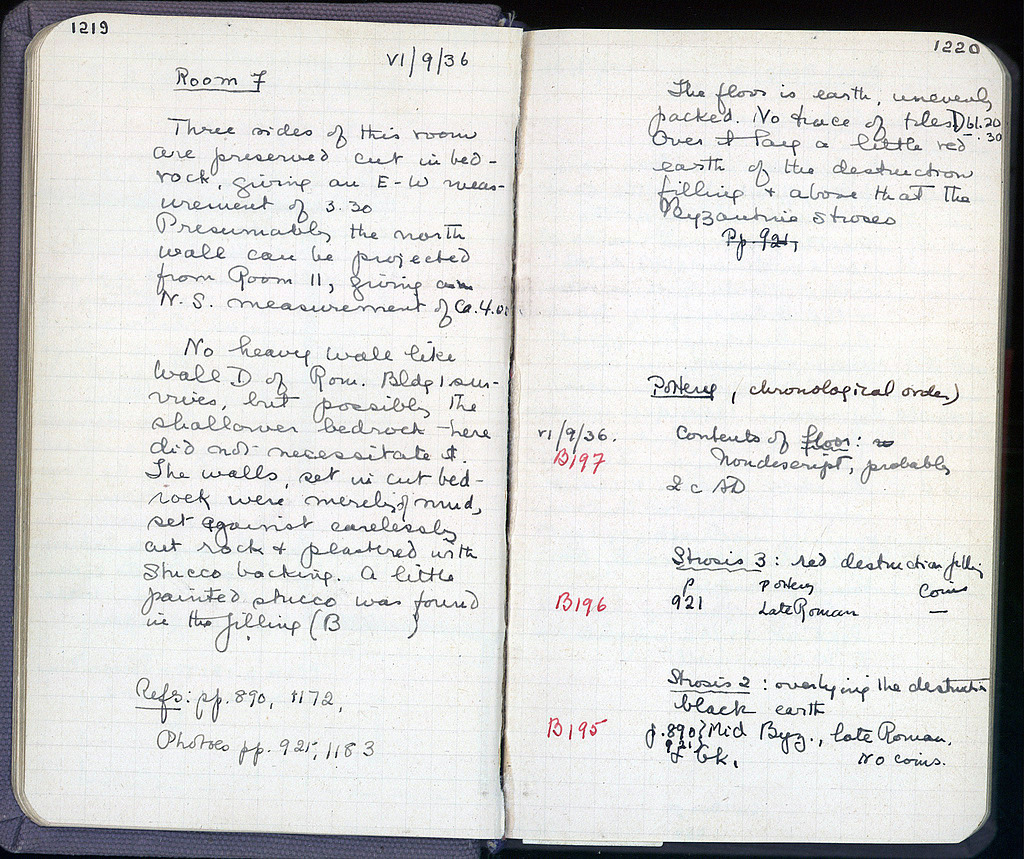 1219
VI/9/36
Room 7
Three sides of this room
are preserved cut in bed-
rock, giving an E-W meas-
urement of 3.30
Presumably the north
wall can be projected
from Room 11, giving
N.S. measurement of Ca. 4.00
No heavy wall like
Wall D of Rom. Bldg 1 sur-
vives, but possibly the
shallower bedrock here
did not necessitate it.
The walls, set in cut bed-
rock were merely of mud,
set against carelessly
cut rock & plastered with
stucco backing. A little
painted stucco was found
in the filling (B )
Refs: pp. 890, 1172,
Photos pp. 925, 1183
1220
The floor is earth, unevenly
packed. No trace of tiles D 61.20
.30
Over it lay a little red
earth of the destruction
filling & above that the
Byzantine stroses
Pp. 921,
Pottery, chronological order)
VI/9/36. Contents of floor:
B197 Nondescript, probably
2 c AD
Strosis 3: red destruction filling
P Pottery Coins
B196 921 Late Roman —
Strosis 2: overlying the destruction
black earth
B195 p. 890} Mid Byz., late Roman,
921 & Gk. No coins.